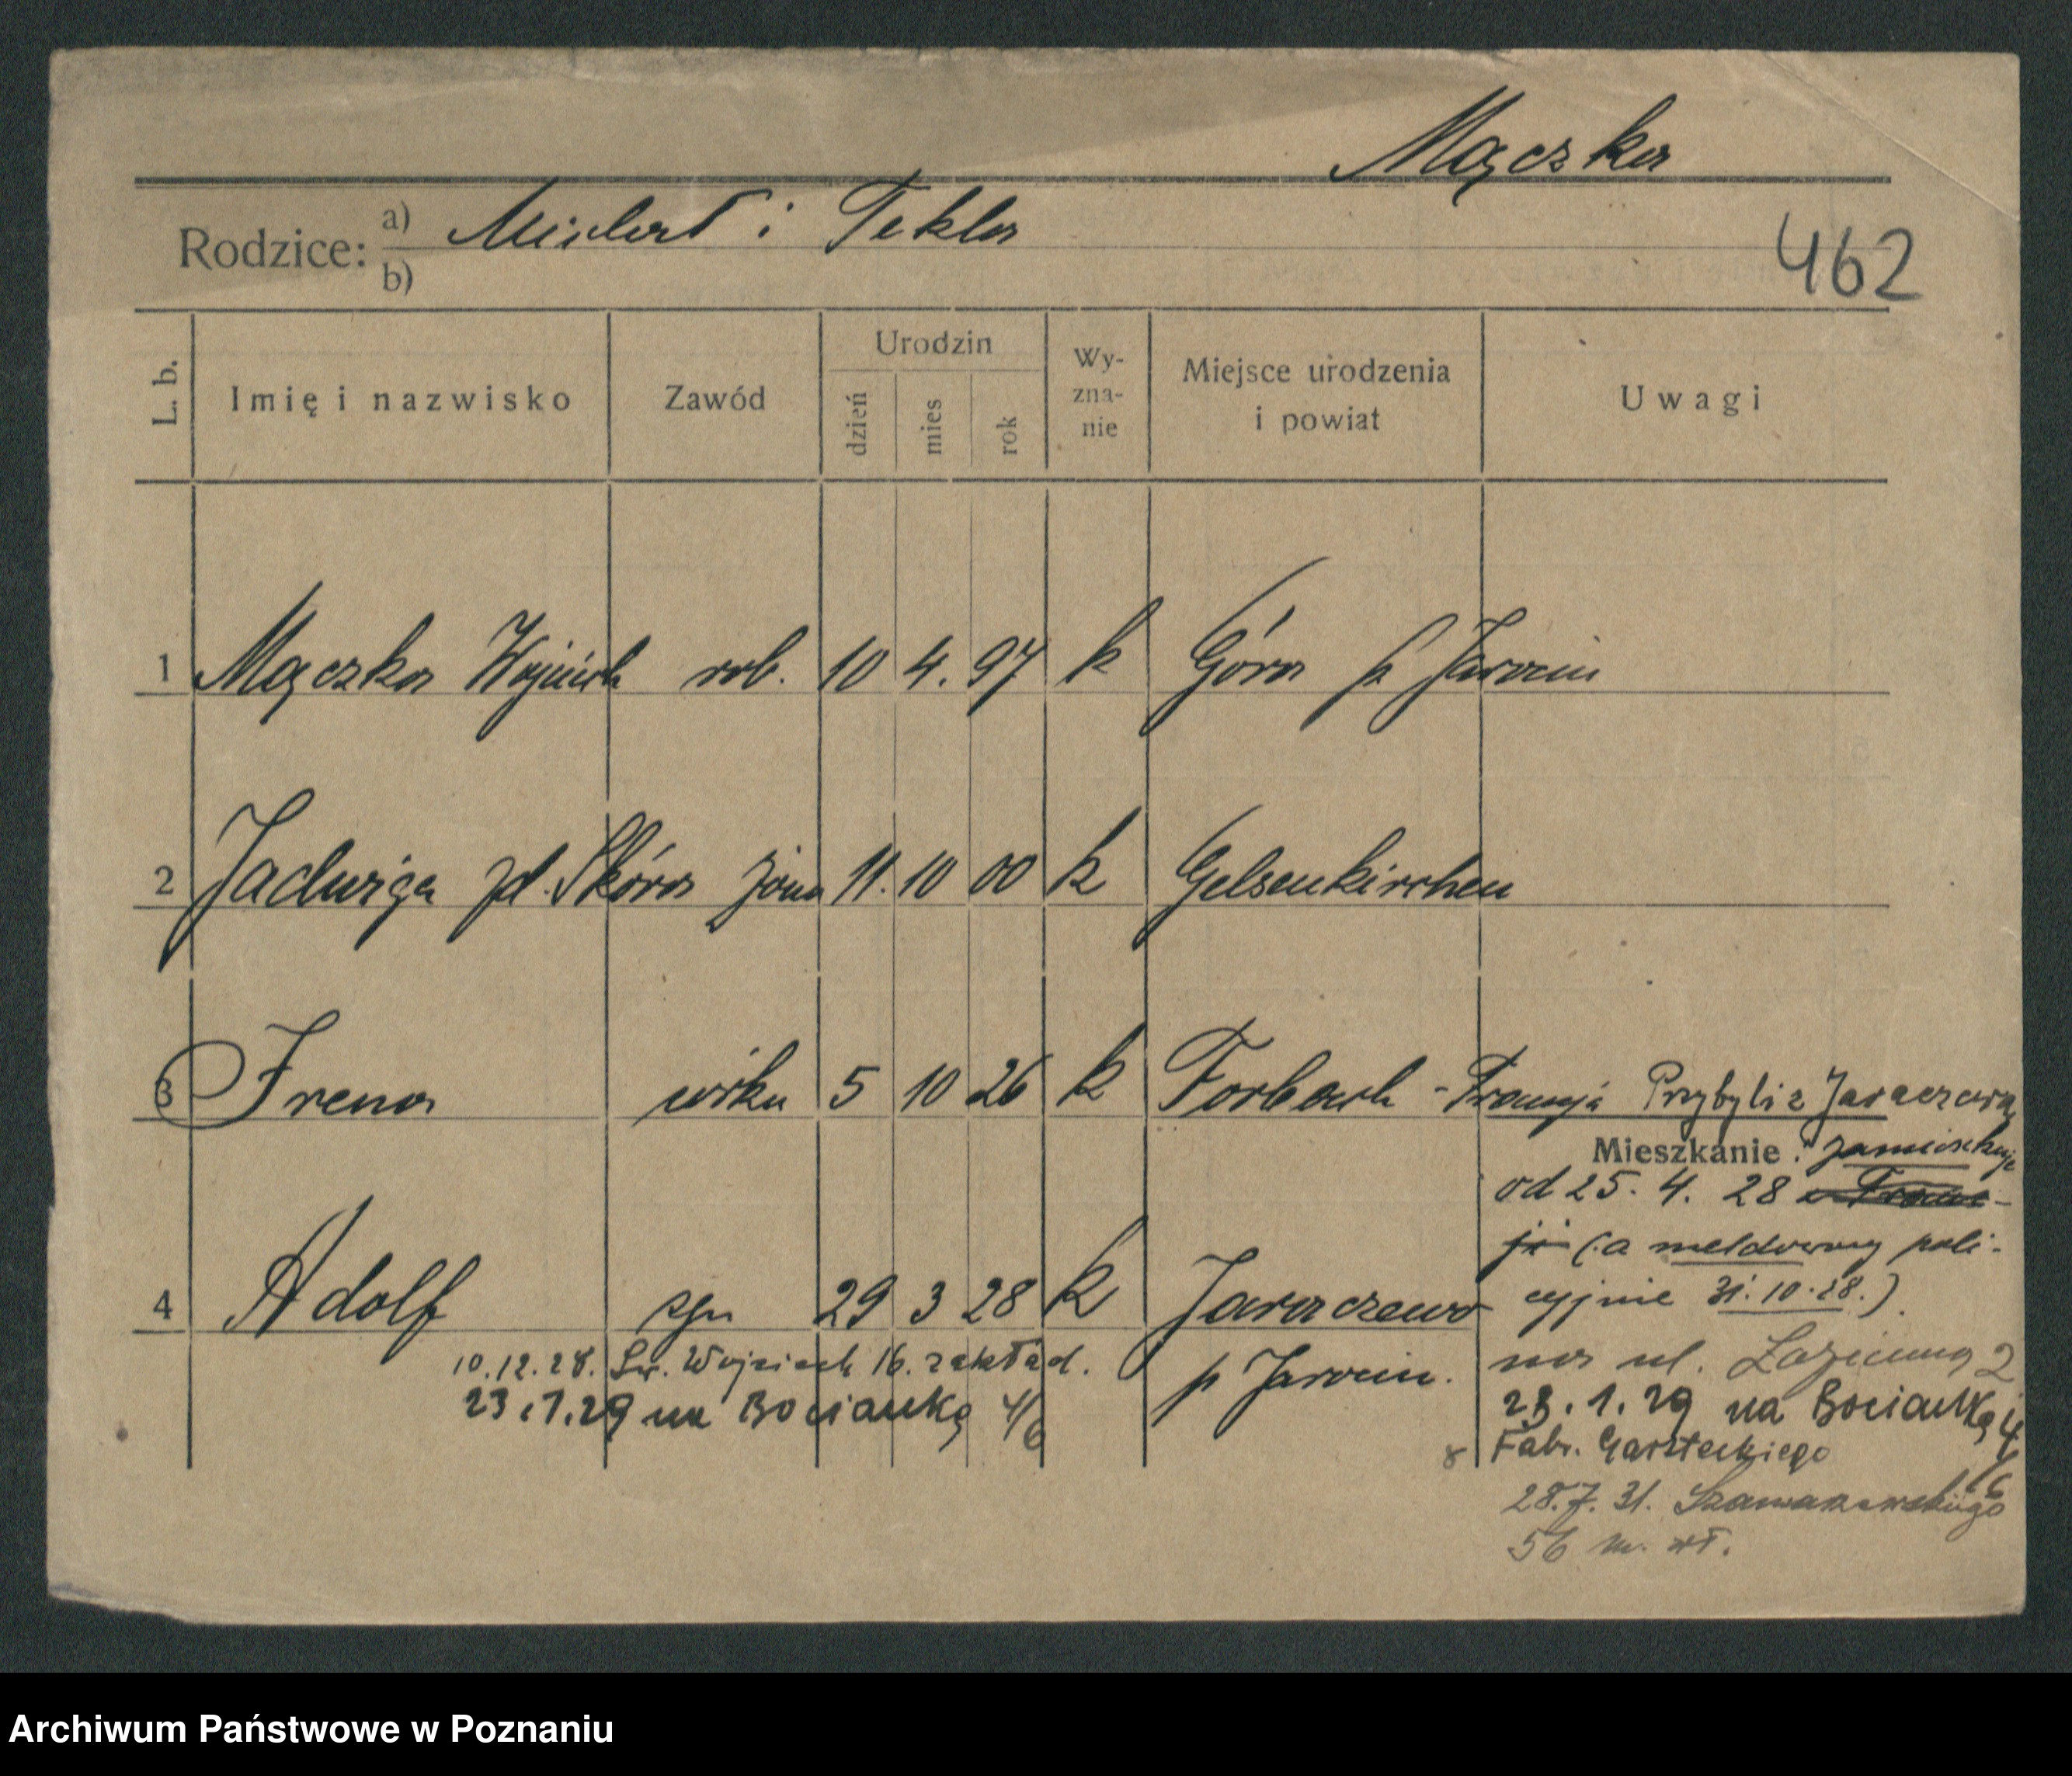 Mączka
Rodzice: a) Michał i Tekla
b)
462
L. b. Imię i nazwisko Zawód Urodzin dzień mies rok Wy-zna-nie Miejsce urodzenia i powiat Uwagi
1 Mączka Wojciech rob. 10 4. 97 k Góra p Jarocin
2 Jadwiga zd. Skóra żona 11. 10 00 k Gelsenkirchen
3 Irena córka 5 10 26 k Forbach - Francja Przybyli z Jaraczewa
Mieszkanie: zamieszkuje
od 25. 4. 28 w Fran-
cji (a meldowany poli-
cyjnie 31. 10. 28.)
4 Adolf syn 29 3 28 k Jaraczewo
p Jarocin.
na ul. Łazienną 2
10.12.28. Św. Wojciech 16. zakład.
23.1.29 na Bociankę 4/6
23.1.29 na Bociankę 4/6
Fabr. Garsteckiego
28.7.31.
56 m. wł.
Archiwum Państwowe w Poznaniu